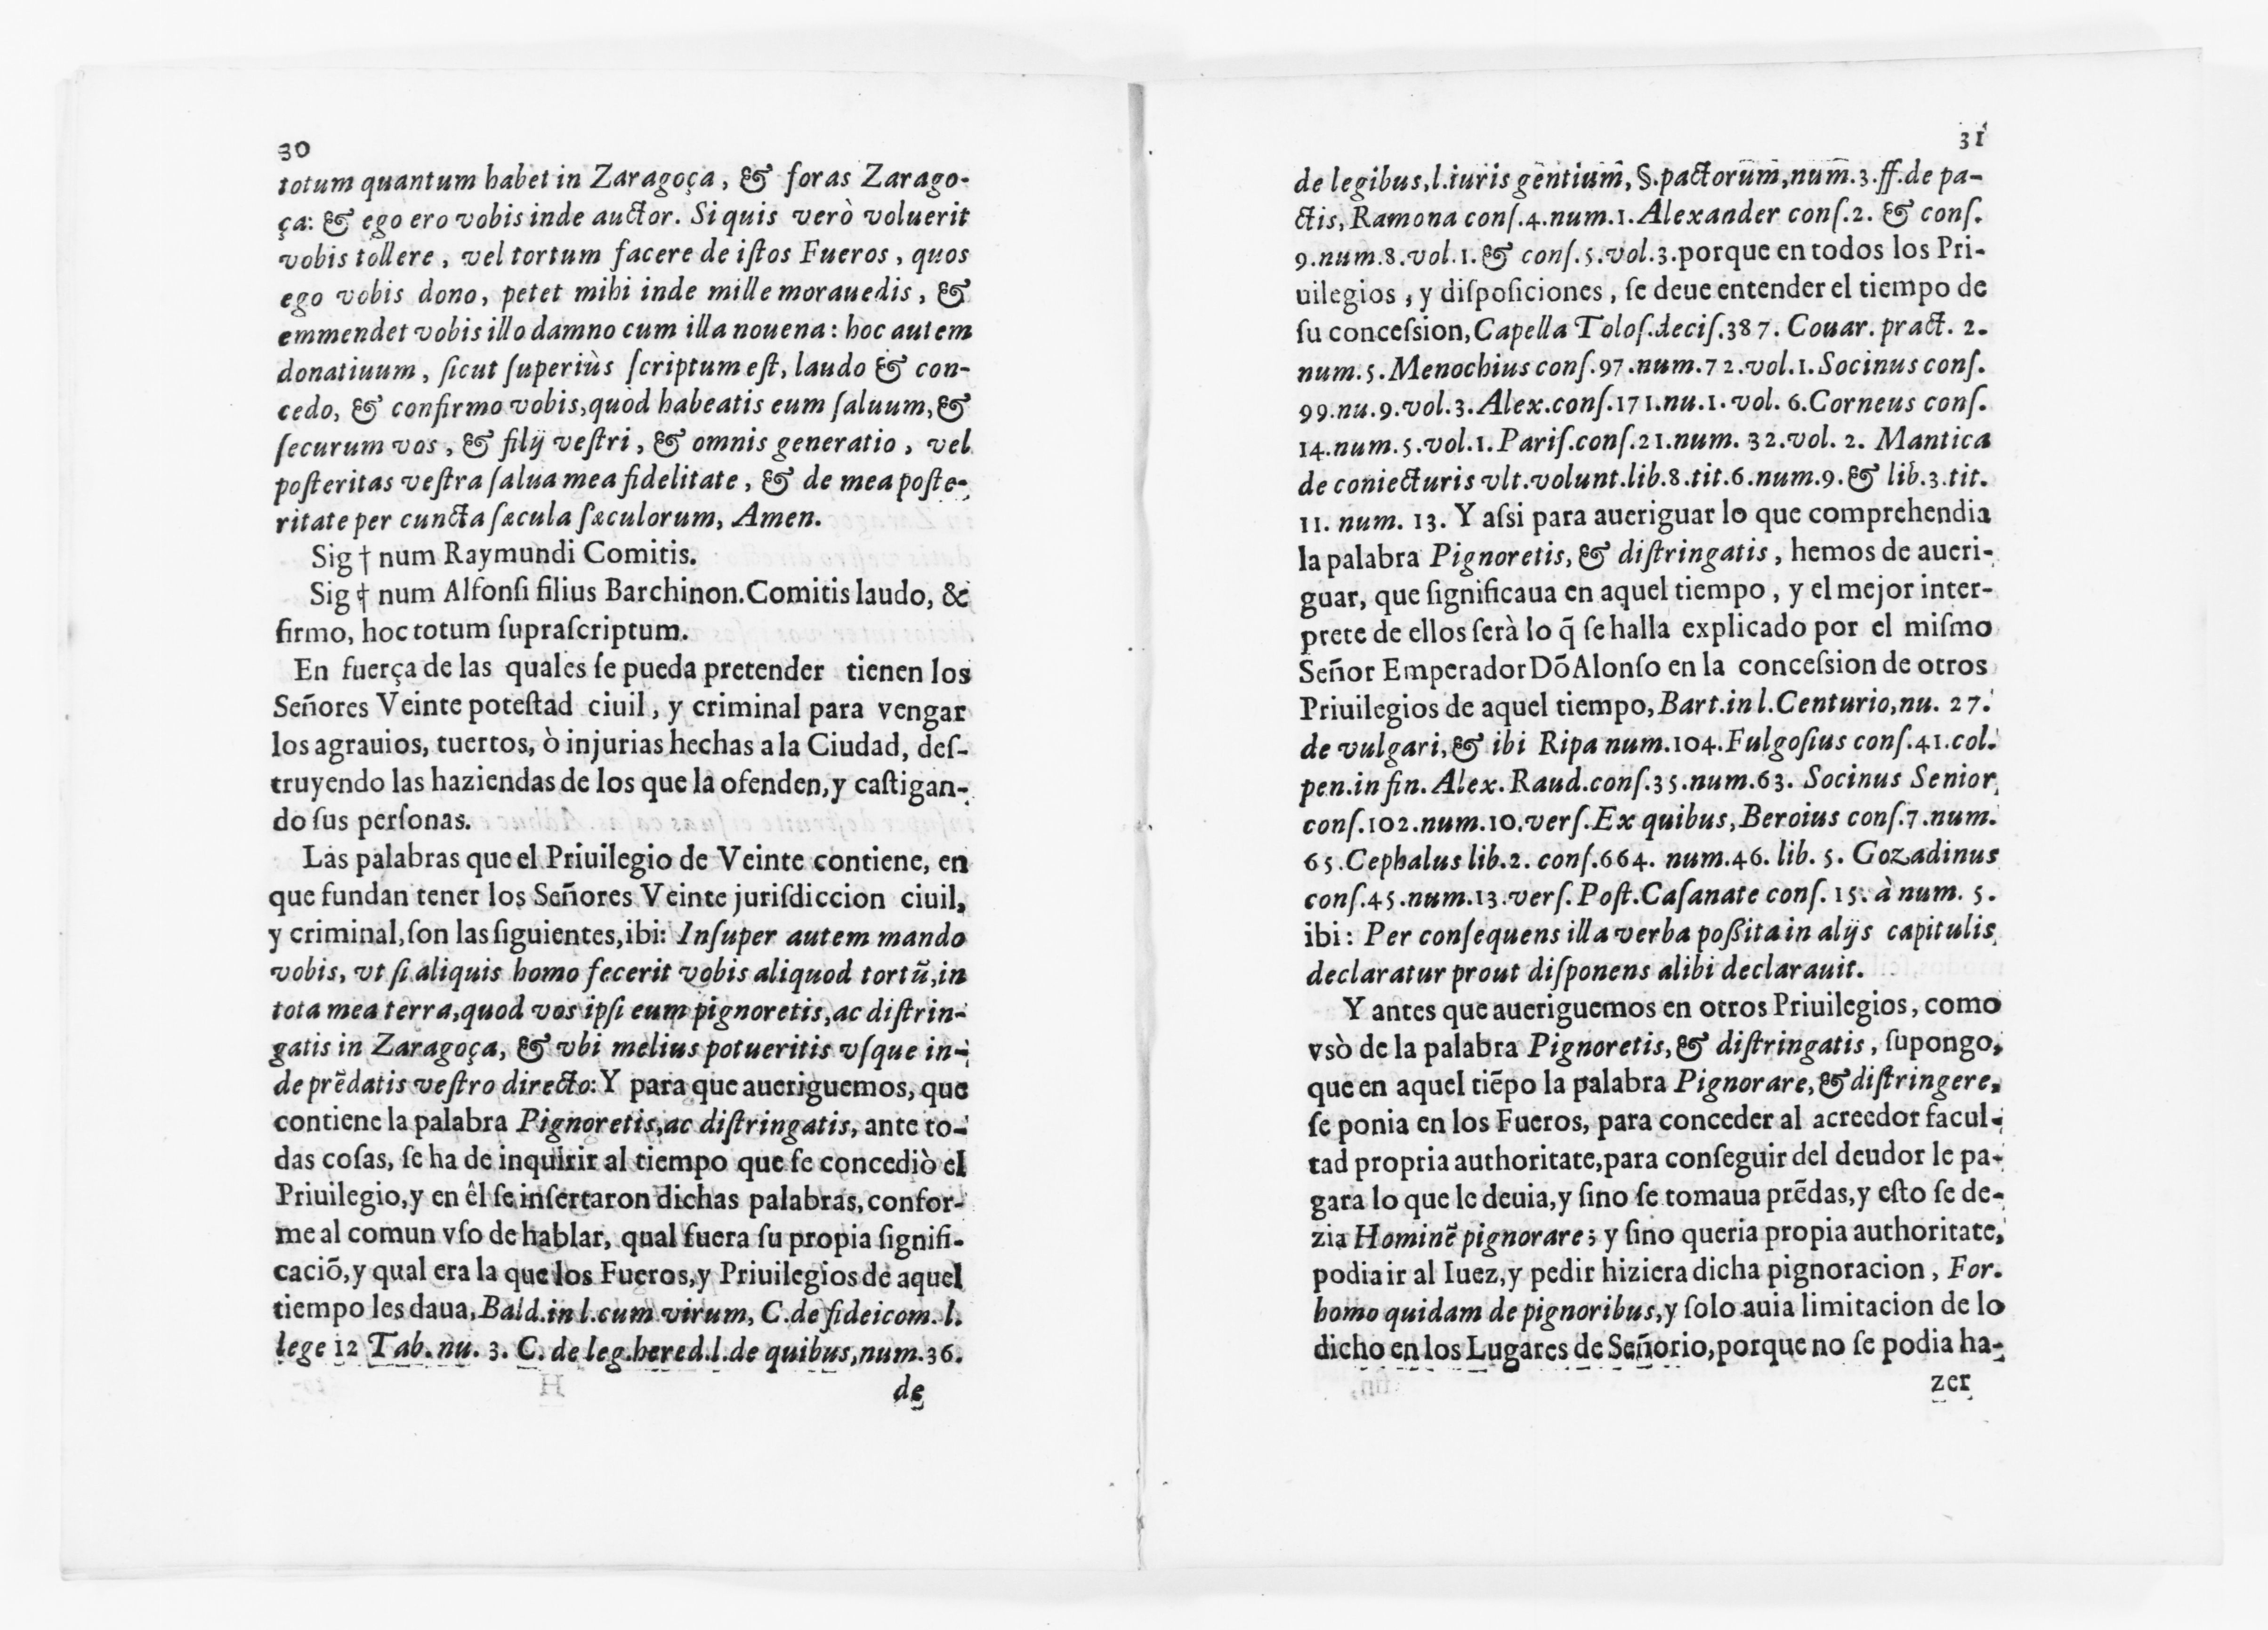 30
totum quantum habet in Zaragoça, & foras Zarago-
ça: & ego ero vobis inde auctor. Si quis verò voluerit
vobis tollere, vel tortum facere de iſtos Fueros, quos
ego vobis dono, petet mihi inde mille morauedis, &
emmendet vobis illo damno cum illa nouena: hoc autem
donatiuum, ſicut ſuperiùs ſcriptum eſt, laudo & con-
cedo, & confirmo vobis, quòd habeatis eum ſaluum, &
ſecurum vos, & filij veſtri, & omnis generatio, vel
poſteritas veſtra ſalua mea fidelitate, & de mea poſte-
ritate per cuncta ſæcula ſæculorum, Amen.
Sig † num Raymundi Comitis.
Sig † num Alfonſi filius Barchinon. Comitis laudo, &
firmo, hoc totum ſupraſcriptum.
En fuerça de las quales ſe pueda pretender tienen los
Señores Veinte poteſtad ciuil, y criminal para vengar
los agrauios, tuertos, ò injurias hechas a la Ciudad, deſ-
truyendo las haziendas de los que la ofenden, y caſtigan-
do ſus perſonas.
Las palabras que el Priuilegio de Veinte contiene, en
que fundan tener los Señores Veinte juriſdiccion ciuil,
y criminal, ſon las ſiguientes, ibi: Inſuper autem mando
vobis, vt ſi aliquis homo fecerit vobis aliquod tortũ, in
tota mea terra, quod vos ipſi eum pignoretis, ac diſtrin-
gatis in Zaragoça, & vbi melius potueritis vſque in-
de prẽdatis veſtro directo: Y para que aueriguemos, que
contiene la palabra Pignoretis, ac diſtringatis, ante to-
das coſas, ſe ha de inquirir al tiempo que ſe concediò el
Priuilegio, y en êl ſe inſertaron dichas palabras, confor-
me al comun vſo de hablar, qual fuera ſu propia ſignifi-
caciõ, y qual era la que los Fueros, y Priuilegios de aquel
tiempo les daua, Bald. in l. cum virum, C. de fideicom. l.
lege 12 Tab. nu. 3. C. de leg. hered. l. de quibus, num. 36.
de
31
de legibus, l. iuris gentium, §. pactorum, num. 3. ff. de pa-
ctis, Ramona conſ. 4. num. 1. Alexander conſ. 2. & conſ.
9. num. 8. vol. 1. & conſ. 5. vol. 3. porque en todos los Pri-
uilegios, y diſpoſiciones, ſe deue entender el tiempo de
ſu conceſsion, Capella Toloſ. deciſ. 387. Couar. pract. 2.
num. 5. Menochius conſ. 97. num. 72. vol. 1. Socinus conſ.
99. nu. 9. vol. 3. Alex. conſ. 171. nu. 1. vol. 6. Corneus conſ.
14. num. 5. vol. 1. Pariſ. conſ. 21. num. 32. vol. 2. Mantica
de coniecturis vlt. volunt. lib. 8. tit. 6. num. 9. & lib. 3. tit.
11. num. 13. Y aſsi para aueriguar lo que comprehendia
la palabra Pignoretis, & diſtringatis, hemos de aueri-
guar, que ſignificaua en aquel tiempo, y el mejor inter-
prete de ellos ſerà lo q̃ ſe halla explicado por el miſmo
Señor Emperador Dõ Alonſo en la conceſsion de otros
Priuilegios de aquel tiempo, Bart. in l. Centurio, nu. 27.
de vulgari, & ibi Ripa num. 104. Fulgoſius conſ. 41. col.
pen. in fin. Alex. Raud. conſ. 35. num. 63. Socinus Senior
conſ. 102. num. 10. verſ. Ex quibus, Beroius conſ. 7. num.
65. Cephalus lib. 2. conſ. 664. num. 46. lib. 5. Gozadinus
conſ. 45. num. 13. verſ. Poſt. Caſanate conſ. 15. à num. 5.
ibi: Per conſequens illa verba poßita in alijs capitulis
declaratur prout diſponens alibi declarauit.
Y antes que aueriguemos en otros Priuilegios, como
vsò de la palabra Pignoretis, & diſtringatis, ſupongo,
que en aquel tiẽpo la palabra Pignorare, & diſtringere,
ſe ponia en los Fueros, para conceder al acreedor facul-
tad propria authoritate, para conſeguir del deudor le pa-
gara lo que le deuia, y ſino ſe tomaua prẽdas, y eſto ſe de-
zia Hominẽ pignorare; y ſino queria propia authoritate,
podia ir al Iuez, y pedir hiziera dicha pignoracion, For.
homo quidam de pignoribus, y ſolo auia limitacion de lo
dicho en los Lugares de Señorio, porque no ſe podia ha-
zer